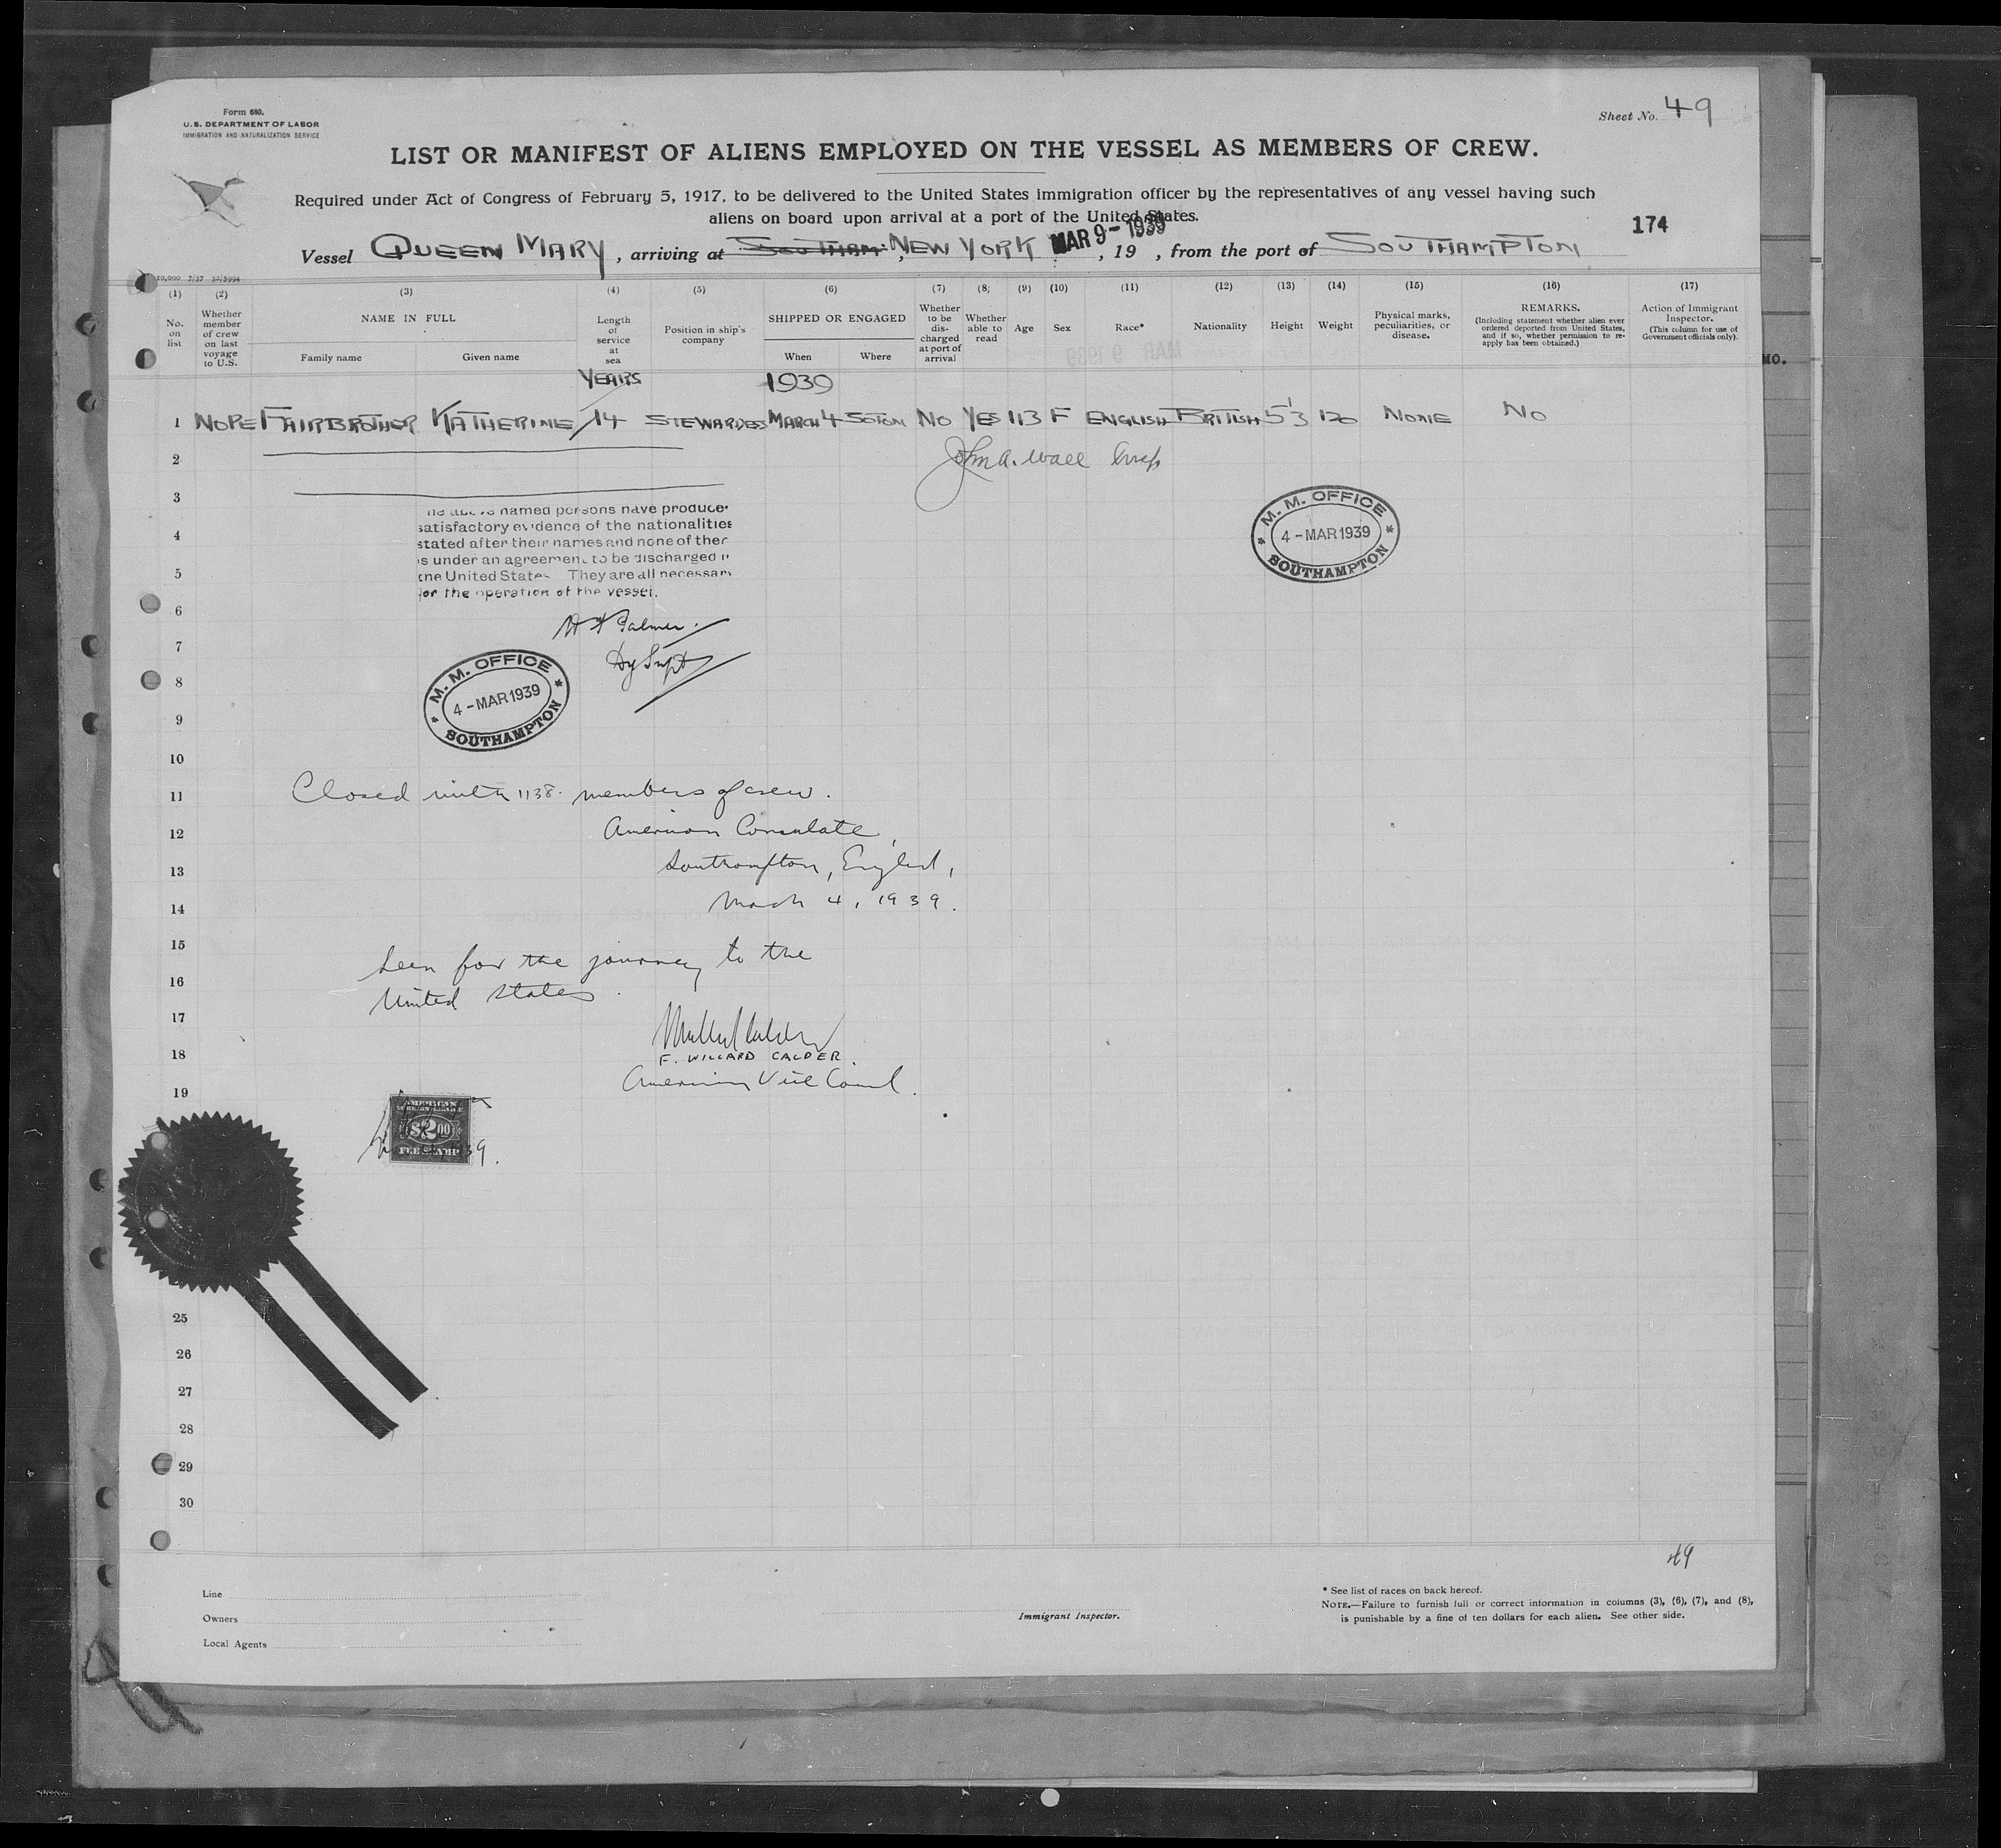 Form 680.
U.S. DEPARTMENT OF LABOR
IMMIGRATION AND NATURALIZATION SERVICE
Sheet No. 49
LIST OR MANIFEST OF ALIENS EMPLOYED ON THE VESSEL AS MEMBERS OF CREW.
Required under Act of Congress of February 5, 1917, to be delivered to the United States immigration officer by the representatives of any vessel having such
aliens on board upon arrival at a port of the United States.
174
Vessel QUEEN MARY, arriving at SOUTHAM. NEW YORK MAR 9 - 1939, 19 , from the port of SOUTHAMPTON
10,000 7/37
(1) (2) (3) (4) (5) (6) (7) (8) (9) (10) (11) (12) (13) (14) (15) (16) (17)
No. on list
Whether member of crew on last voyage to U.S.
NAME IN FULL
Family name Given name
Length of service at sea
Position in ship's company
SHIPPED OR ENGAGED
When Where
Whether to be discharged at port of arrival
Whether able to read
Age
Sex
Race*
Nationality
Height
Weight
Physical marks, peculiarities, or disease.
REMARKS.
(Including statement whether alien ever ordered deported from United States, and if so, whether permission to re-apply has been obtained.)
Action of Immigrant Inspector.
(This column for use of Government officials only).
MAR 9 1939
MO.
YEARS 1939
1 NOPE FAIRBROTHER KATHERINE 14 STEWARDESS MARCH 4 SOTON NO YES 43 F ENGLISH BRITISH 5'3 120 NONE NO
2 John A. Wall
3
named persons have produce
satisfactory evidence of the nationalities
4
stated after their names and none of ther
s under an agreement to be discharged
5
the United States They are all necessary
for the operation of the vessel.
M. M. OFFICE
4 - MAR 1939
SOUTHAMPTON
6
Palmer.
7
Dy Supt
8
M. M. OFFICE
4 - MAR 1939
SOUTHAMPTON
9
10
11 Closed with 1138. members of crew.
12 American Consulate,
13 Southampton, England,
14 March 4, 1939.
15 Seen for the journey to the
16 United States.
17
18 F. WILLARD CALDER.
American Vice Consul.
19
AMERICAN
$2.00
FEE STAMP
9.
25
26
27
28
29
30
49
Line
Owners
Local Agents
Immigrant Inspector.
* See list of races on back hereof.
NOTE.—Failure to furnish full or correct information in columns (3), (6), (7), and (8),
is punishable by a fine of ten dollars for each alien. See other side.